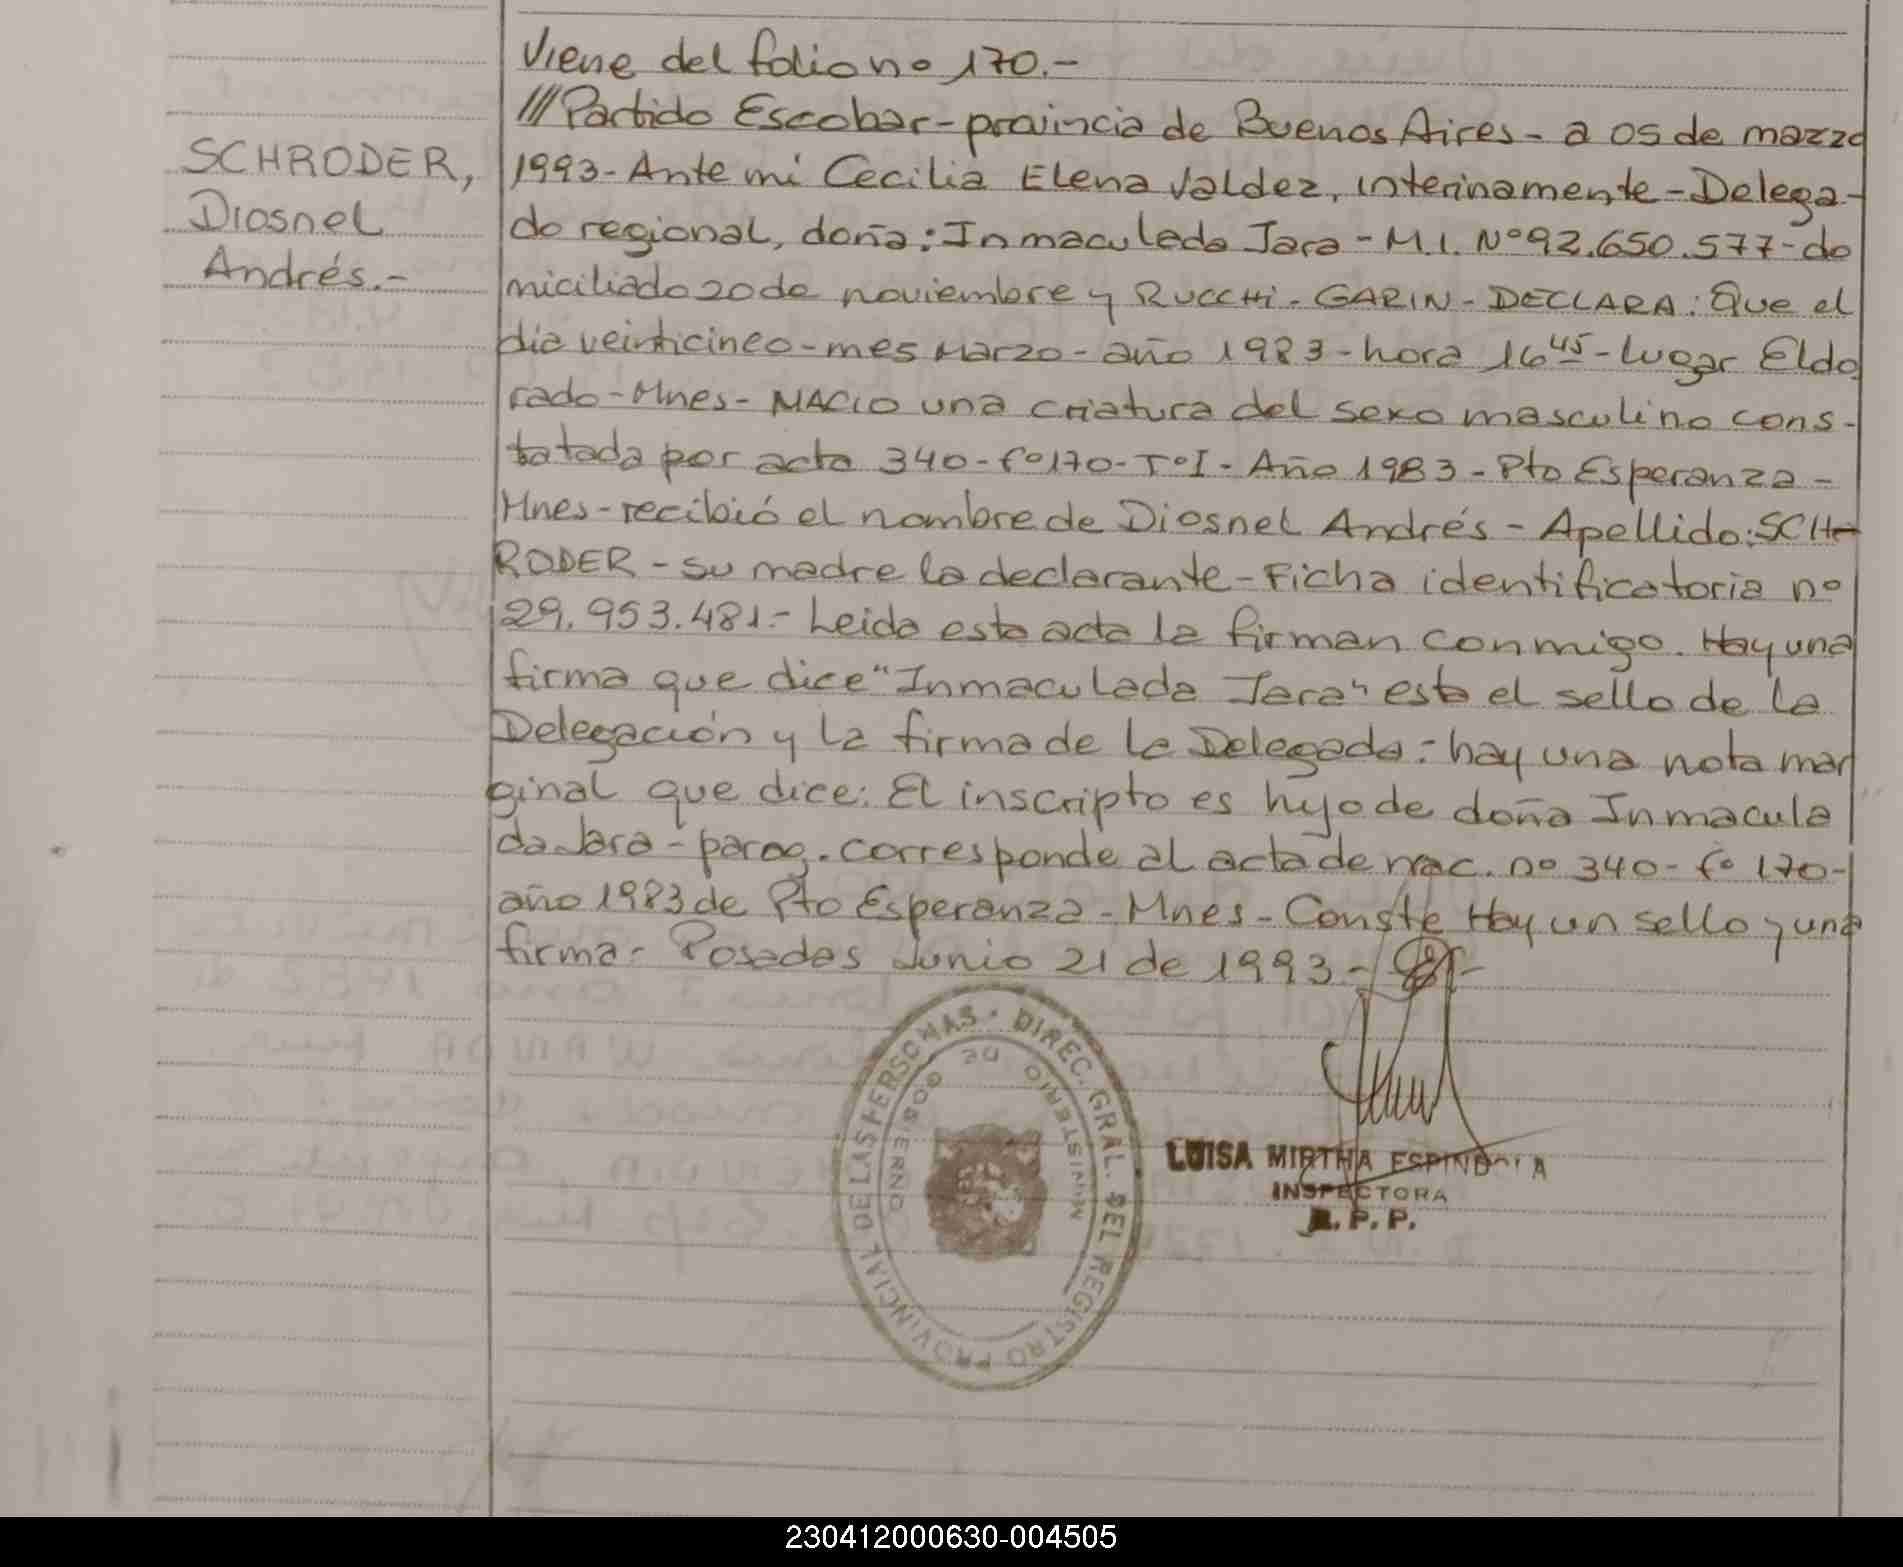 Viene del folio nº 170.-
SCHRODER,
Diosnel
Andrés.-
///Partido Escobar-provincia de Buenos Aires- a 05 de marzo
1993-Ante mi Cecilia Elena Valdez, interinamente-Delega-
do regional, doña: Inmaculada Jara-M.I. Nº92.650.577-do
miciliado 20 de noviembre y RUCCHI-GARIN-DECLARA: Que el
dia veinticinco-mes Marzo-año 1983-hora 16 45-lugar Eldo
rado-Mnes-NACIO una criatura del sexo masculino cons-
tatada por acta 340-fº170-TºI-Año 1983-Pto Esperanza-
Mnes-recibió el nombre de Diosnel Andrés-Apellido: SCH-
RODER-su madre la declarante-Ficha identificatoria nº
29.953.481.-Leida esta acta la firman conmigo. Hay una
firma que dice "Inmaculada Jara" esta el sello de la
Delegación y la firma de la Delegada:-hay una nota mar
ginal que dice: El inscripto es hijo de doña Inmacula
da Jara-parag. corresponde al acta de nac. nº 340-fº 170-
año 1983 de Pto Esperanza-Mnes-Conste Hay un sello y una
firma- Posadas Junio 21 de 1993-
DIREC. GRAL. DEL REGISTRO PROVINCIAL DE LAS PERSONAS
MINISTERIO DE GOBIERNO
LUISA MIRTHA ESPINDOLA
INSPECTORA
R. P. P.
230412000630-004505